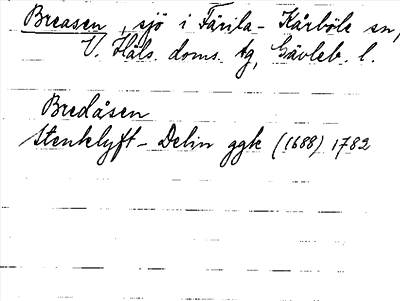 Breasen, sjö i Färila-Kårböle sn,
V. Häls. doms. tg, Gävleb. l.
Bredåsen
Stenklyft - Delin ggk (1688) 1782